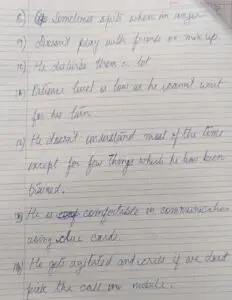 8) Sometimes spits when in anger
9) Doesn't play with friends or mix up.
10) He disturbs them a lot
11) Patience level is low as he doesn't wait
for his turn
12) He doesn't understand most of the time
except for few things which he has been
trained.
13) He is comfortable in communication
using clue cards.
14) He gets agitated and cries if we don't
pick the call on mobile.